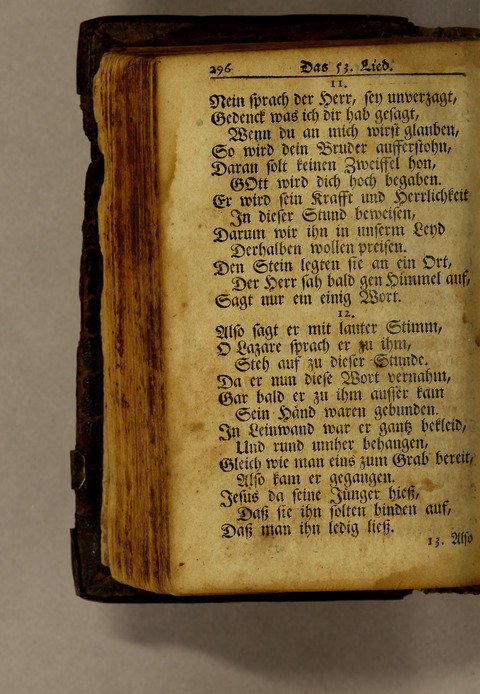 296 Das 53. Lied.
11.
Nein sprach der Herr, sey unverzagt,
Gedenck was ich dir hab gesagt,
Wenn du an mich wirst glauben,
So wird dein Bruder aufferstohn,
Daran solt keinen Zweiffel hon,
GOtt wird dich hoch begaben.
Er wird sein Krafft und Herrlichkeit
In dieser Stund beweisen,
Darum wir ihn in unserm Leyd
Derhalben wollen preisen.
Den Stein legten sie an ein Ort,
Der Herr sah bald gen Himmel auf,
Sagt nur ein einig Wort.
12.
Also sagt er mit lauter Stimm,
O Lazare sprach er zu ihm,
Steh auf zu dieser Stunde.
Da er nun diese Wort vernahm,
Gar bald er zu ihm ausser kam
Sein Händ waren gebunden.
In Leinwand war er gantz bekleid,
Und rund umher behangen,
Gleich wie man eins zum Grab bereit,
Also kam er gegangen.
Jesus da seine Jünger hieß,
Daß sie ihn solten binden auf,
Daß man ihn ledig ließ.
13. Also